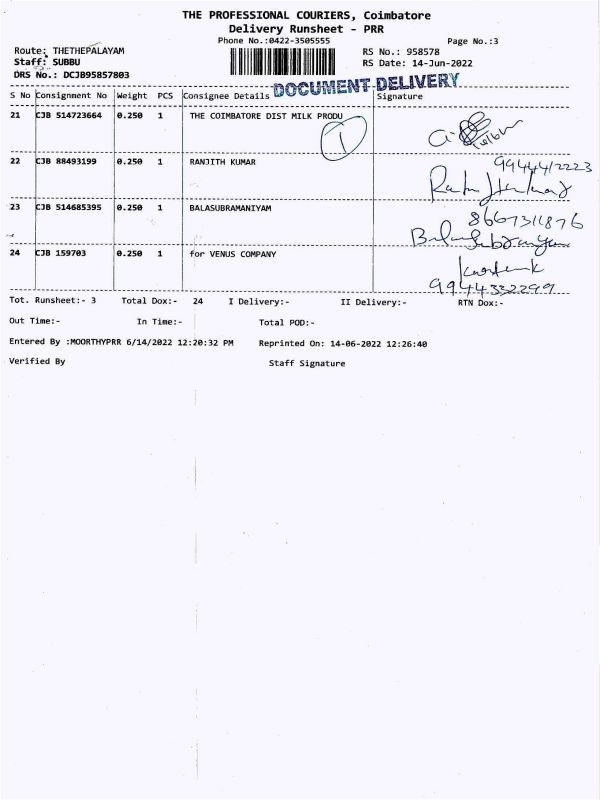 THE PROFESSIONAL COURIERS, Coimbatore
Delivery Runsheet - PRR
Phone No.:0422-3505555 Page No.:3
Route: THETHEPALAYAM RS No.: 958578
Staff: SUBBU RS Date: 14-Jun-2022
DRS No.: DCJB95857803
DOCUMENT DELIVERY
S No Consignment No Weight PCS Consignee Details Signature
21 CJB 514723664 0.250 1 THE COIMBATORE DIST MILK PRODU
1
22 CJB 88493199 0.250 1 RANJITH KUMAR 9944412223
23 CJB 514685395 0.250 1 BALASUBRAMANIYAM 8667311876
Balasubramaniyam
24 CJB 159703 0.250 1 for VENUS COMPANY
9944332299
Tot. Runsheet:- 3 Total Dox:- 24 I Delivery:- II Delivery:- RTN Dox:-
Out Time:- In Time:- Total POD:-
Entered By :MOORTHYPRR 6/14/2022 12:20:32 PM Reprinted On: 14-06-2022 12:26:40
Verified By Staff Signature